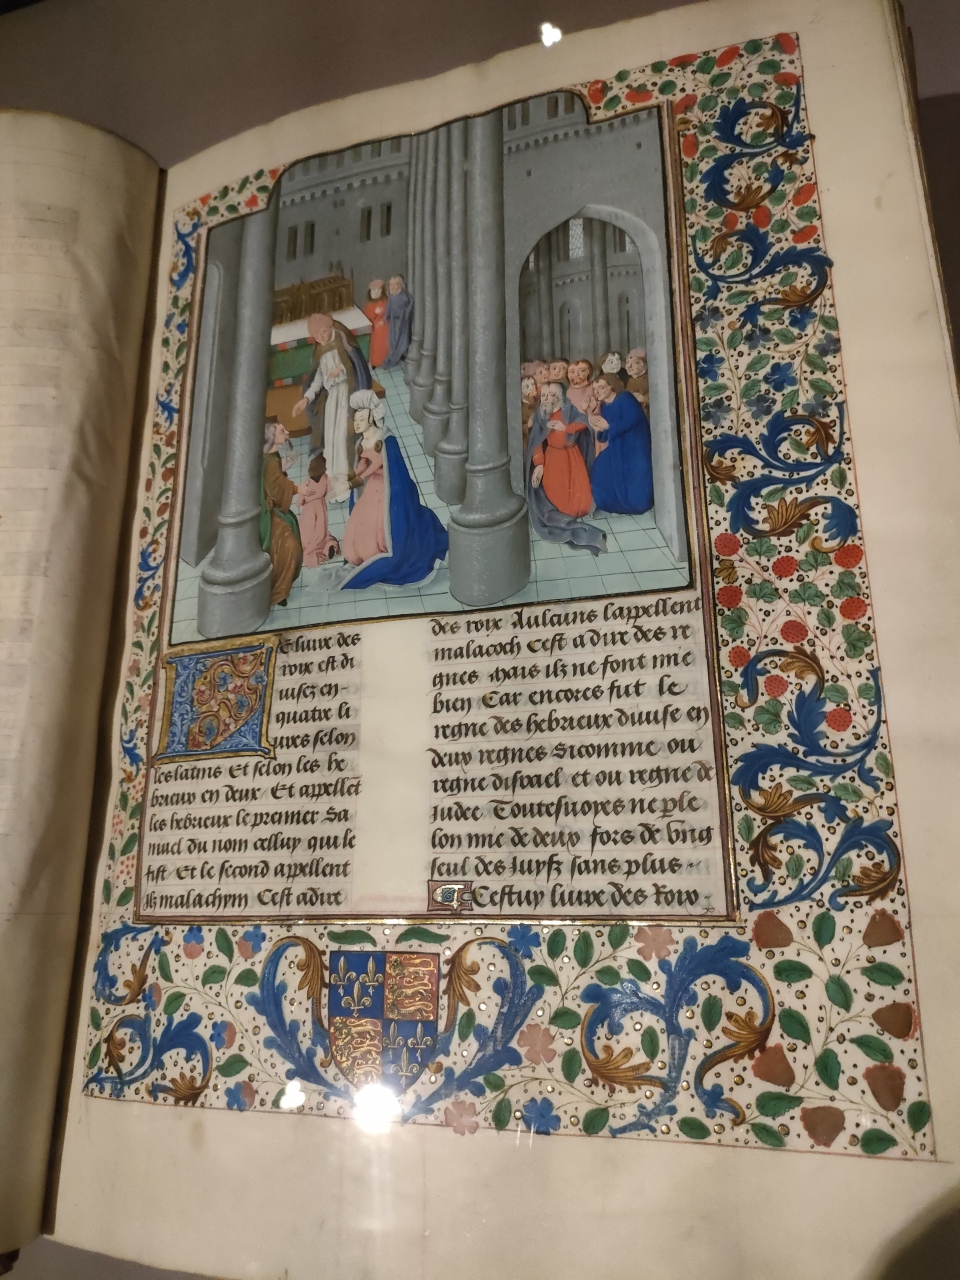 Le liure des
roix est di
uisez en
quatre li
ures selon
les latins Et selon les he
brieux en deux Et appellent
les hebrieux le premier Sa
muel du nom celluy qui le
fist Et le second appellent
ilz malachym Cest adire
des roix Aulcuns lappellent
malacoth Cest a dire des re
gnes Mais ilz ne font mie
bien Car encores fut le
regne des hebrieux diuise en
deux regnes Sicomme ou
regne disrael et ou regne de
Iudee Toutesuoyes ne ple
lon mie de deux fors de vng
seul des Iuyfz sans plus
Cestuy liure des Roix